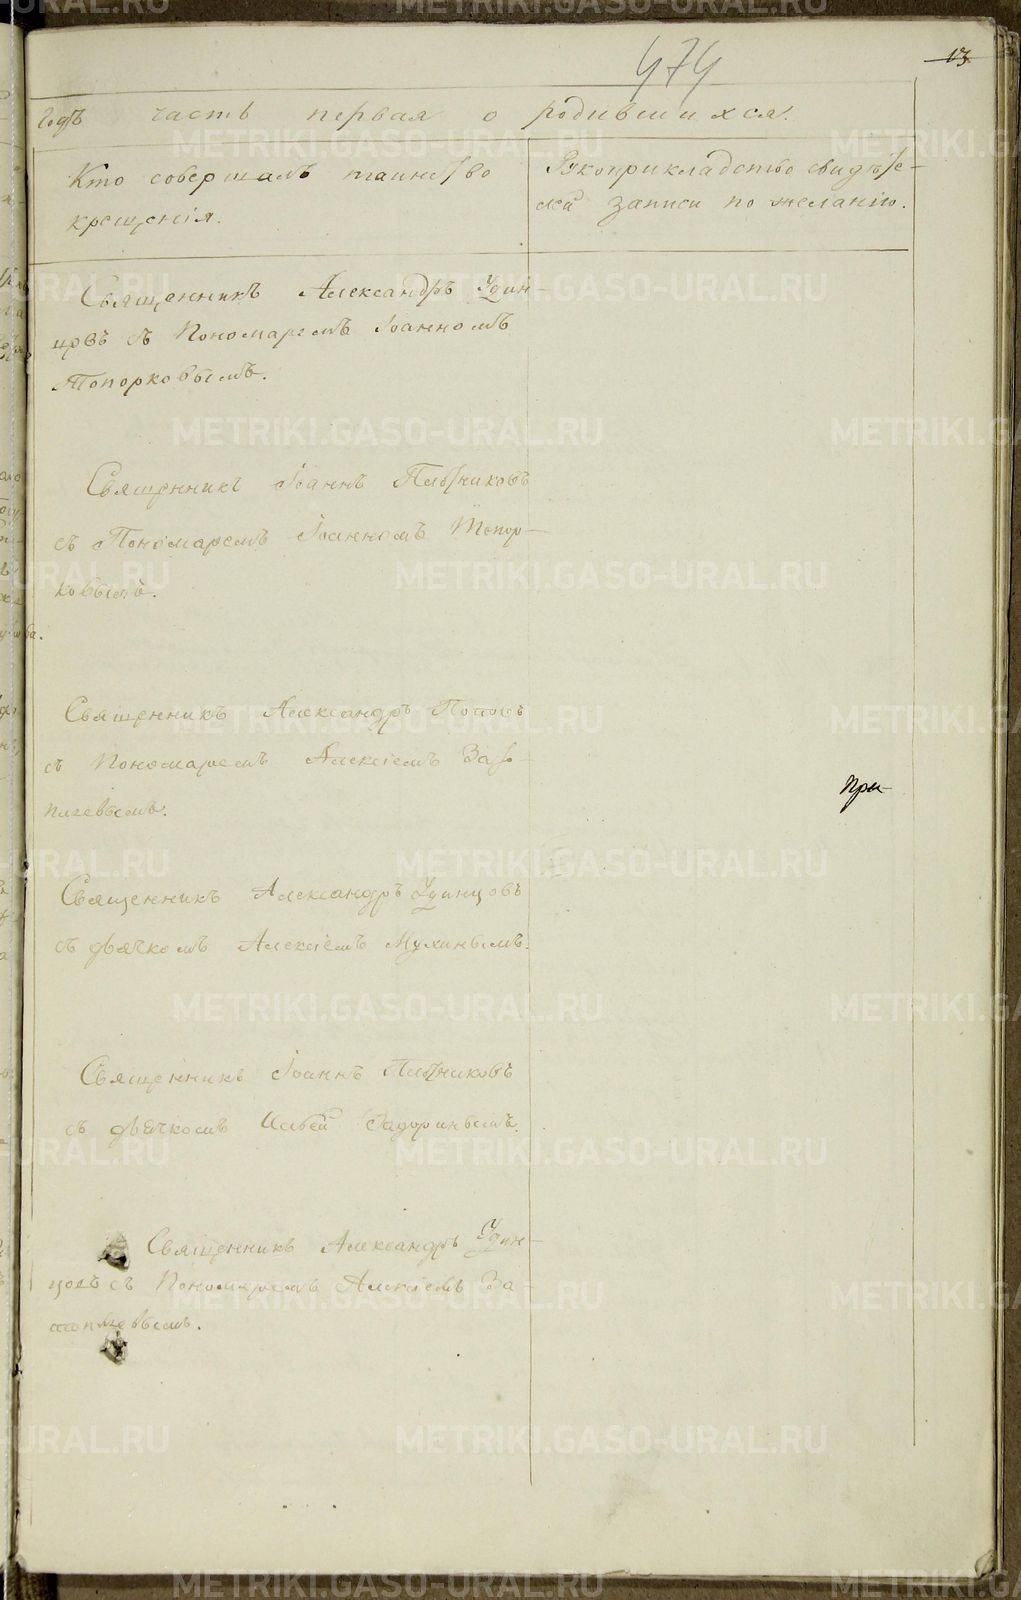 474
13
годъ часть первая о родившихся.
Кто совершалъ таинство
крещенія.
Рукоприкладство свидѣте-
лей записи по желанію.
Священникъ Александръ Удин-
цовъ съ Пономаремъ Іоанномъ
Топорковымъ.
Священникъ Іоаннъ Плотниковъ
съ Пономаремъ Іоанномъ Топор-
ковымъ.
Священникъ Александръ Поповъ
съ Пономаремъ Алексіемъ
Священникъ Александръ Удинцовъ
съ дьячкомъ Алексіемъ Мухинымъ.
Священникъ Іоаннъ Плотниковъ
съ дьячкомъ Задоринымъ.
Священникъ Александръ Удин-
цовъ съ Пономаремъ Алексіемъ За-
При-
METRIKI.GASO-URAL.RU